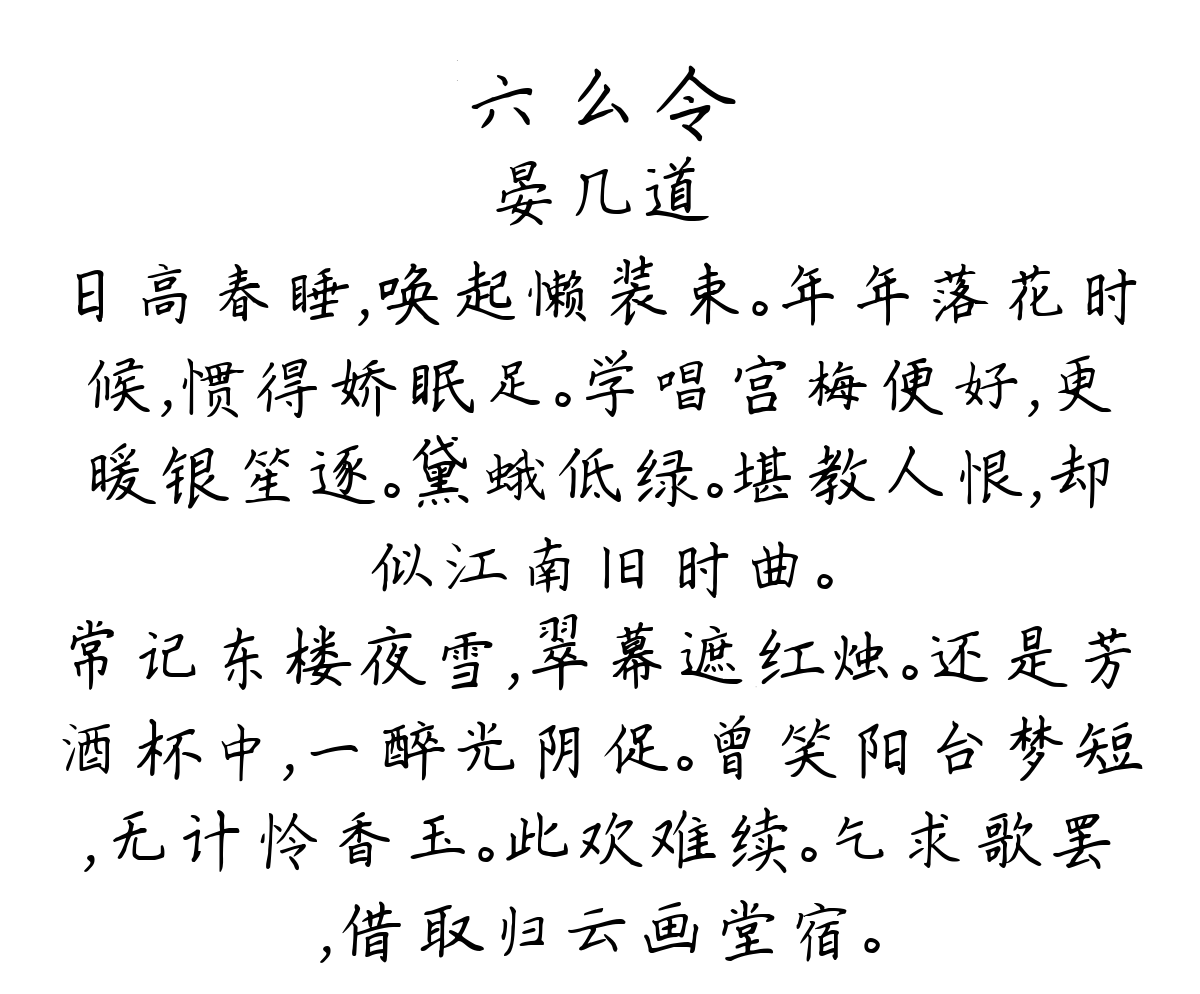 六么令
晏几道
日高春睡,唤起懒装束。年年落花时
候,惯得娇眠足。学唱宫梅便好,更
暖银笙逐。黛蛾低绿。堪教人恨,却
似江南旧时曲。
常记东楼夜雪,翠幕遮红烛。还是芳
酒杯中,一醉光阴促。曾笑阳台梦短
,无计怜香玉。此欢难续。乞求歌罢
,借取归云画堂宿。